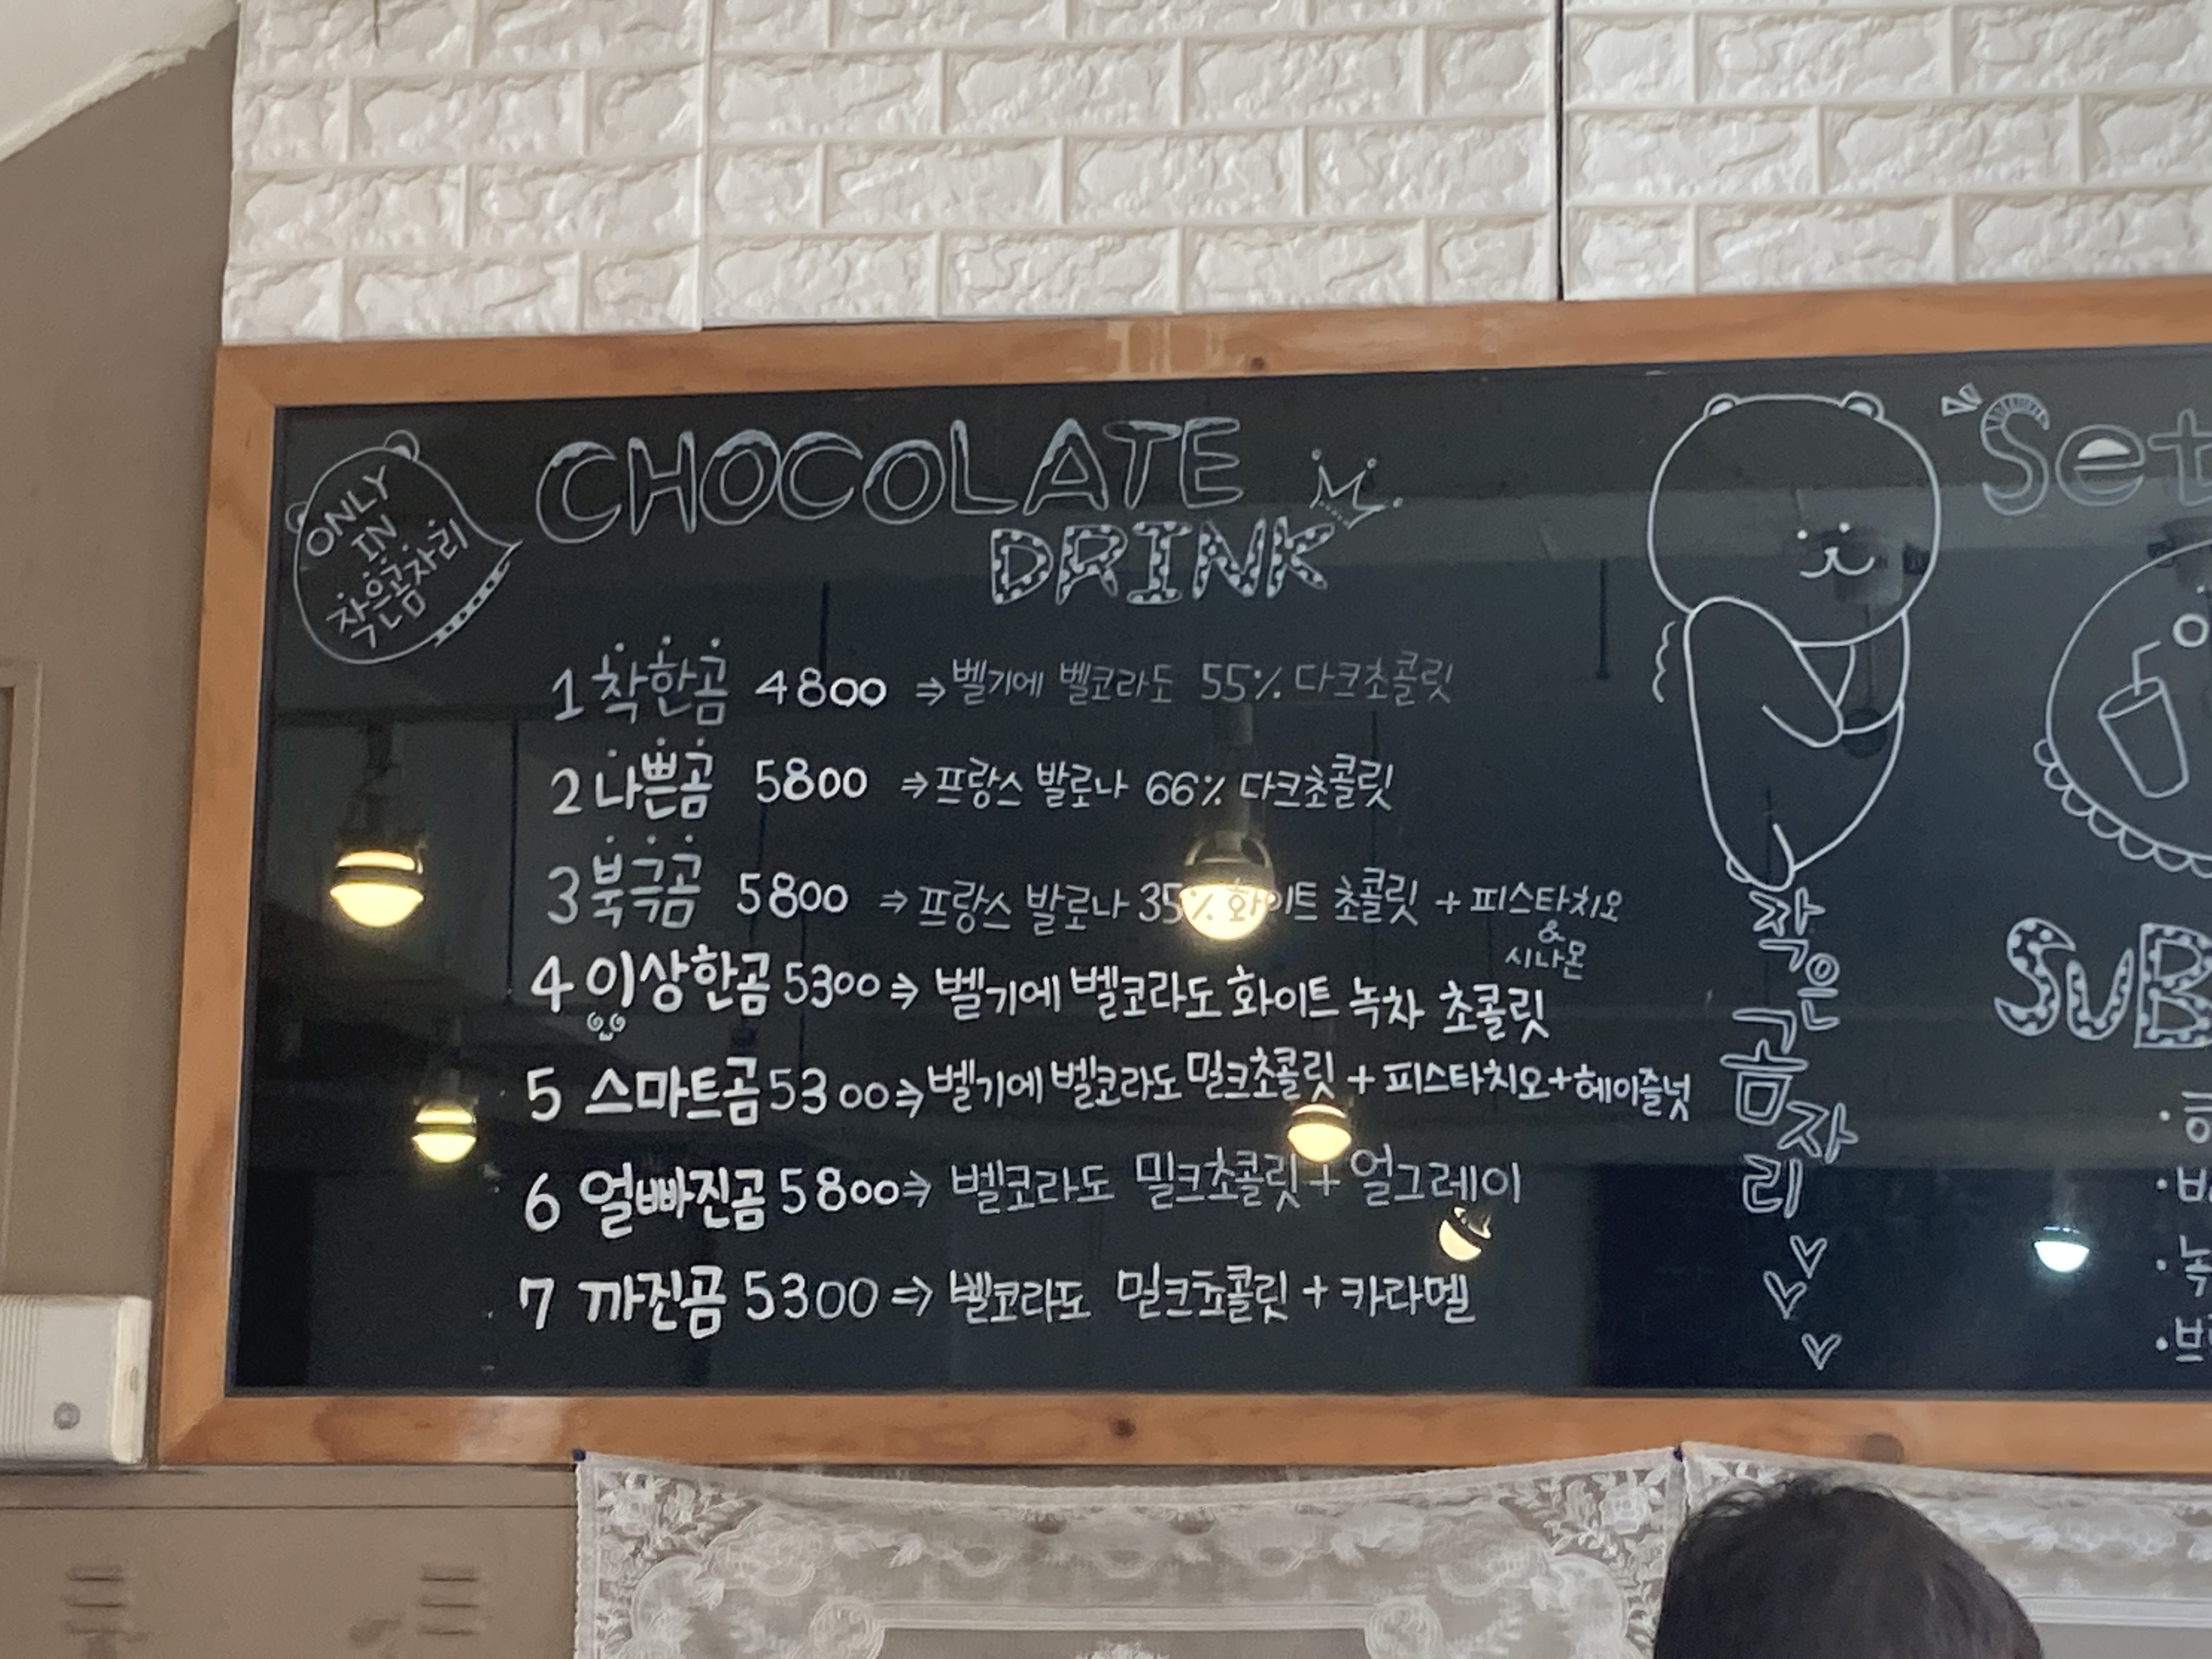 ONLY
IN
작은곰자리
CHOCOLATE
DRINK
1 착한곰 4800 ⇒ 벨기에 벨코라도 55% 다크초콜릿
2 나쁜곰 5800 ⇒ 프랑스 발로나 66% 다크초콜릿
3 북극곰 5800 ⇒ 프랑스 발로나 35% 화이트 초콜릿 + 피스타치오
&
시나몬
4 이상한곰 5300 ⇒ 벨기에 벨코라도 화이트 녹차 초콜릿
5 스마트곰 5300 ⇒ 벨기에 벨코라도 밀크초콜릿 + 피스타치오 + 헤이즐넛
6 얼빠진곰 5800 ⇒ 벨코라도 밀크초콜릿 + 얼그레이
7 까진곰 5300 ⇒ 벨코라도 밀크쵸콜릿 + 카라멜
작은
곰자
리
Set
SUB